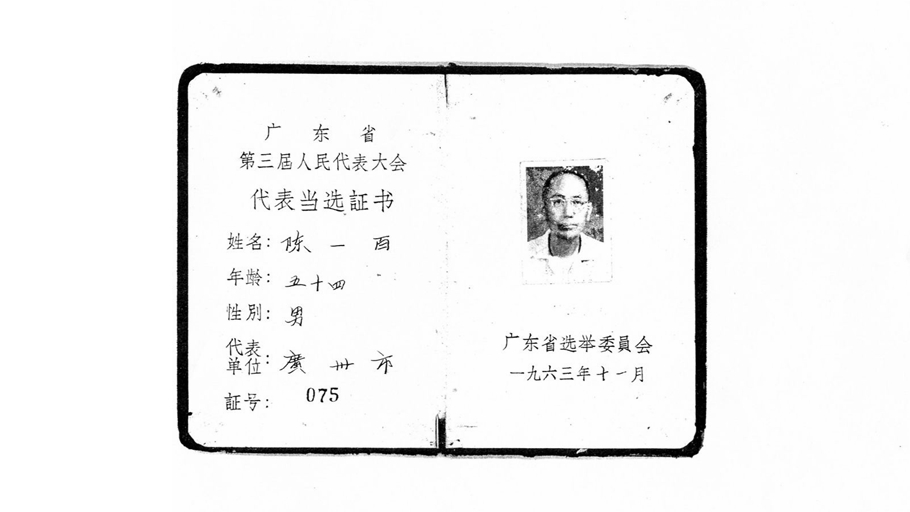 广东省
第三届人民代表大会
代表当选証书
姓名：陈一百
年龄：五十四
性别：男
代表单位：廣州市
証号：075
广东省选举委員会
一九六三年十一月